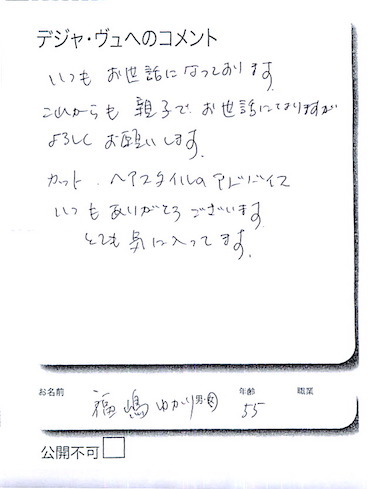 デジャ・ヴュへのコメント
いつも お世話になっております。
これからも 親子で、お世話になりますが
よろしく お願いします。
カット、ヘアスタイルのアドバイス
いつも ありがとうございます。
とても 気に入ってます。
お名前 福嶋 ゆかり 男・女 年齢 55 職業
公開不可